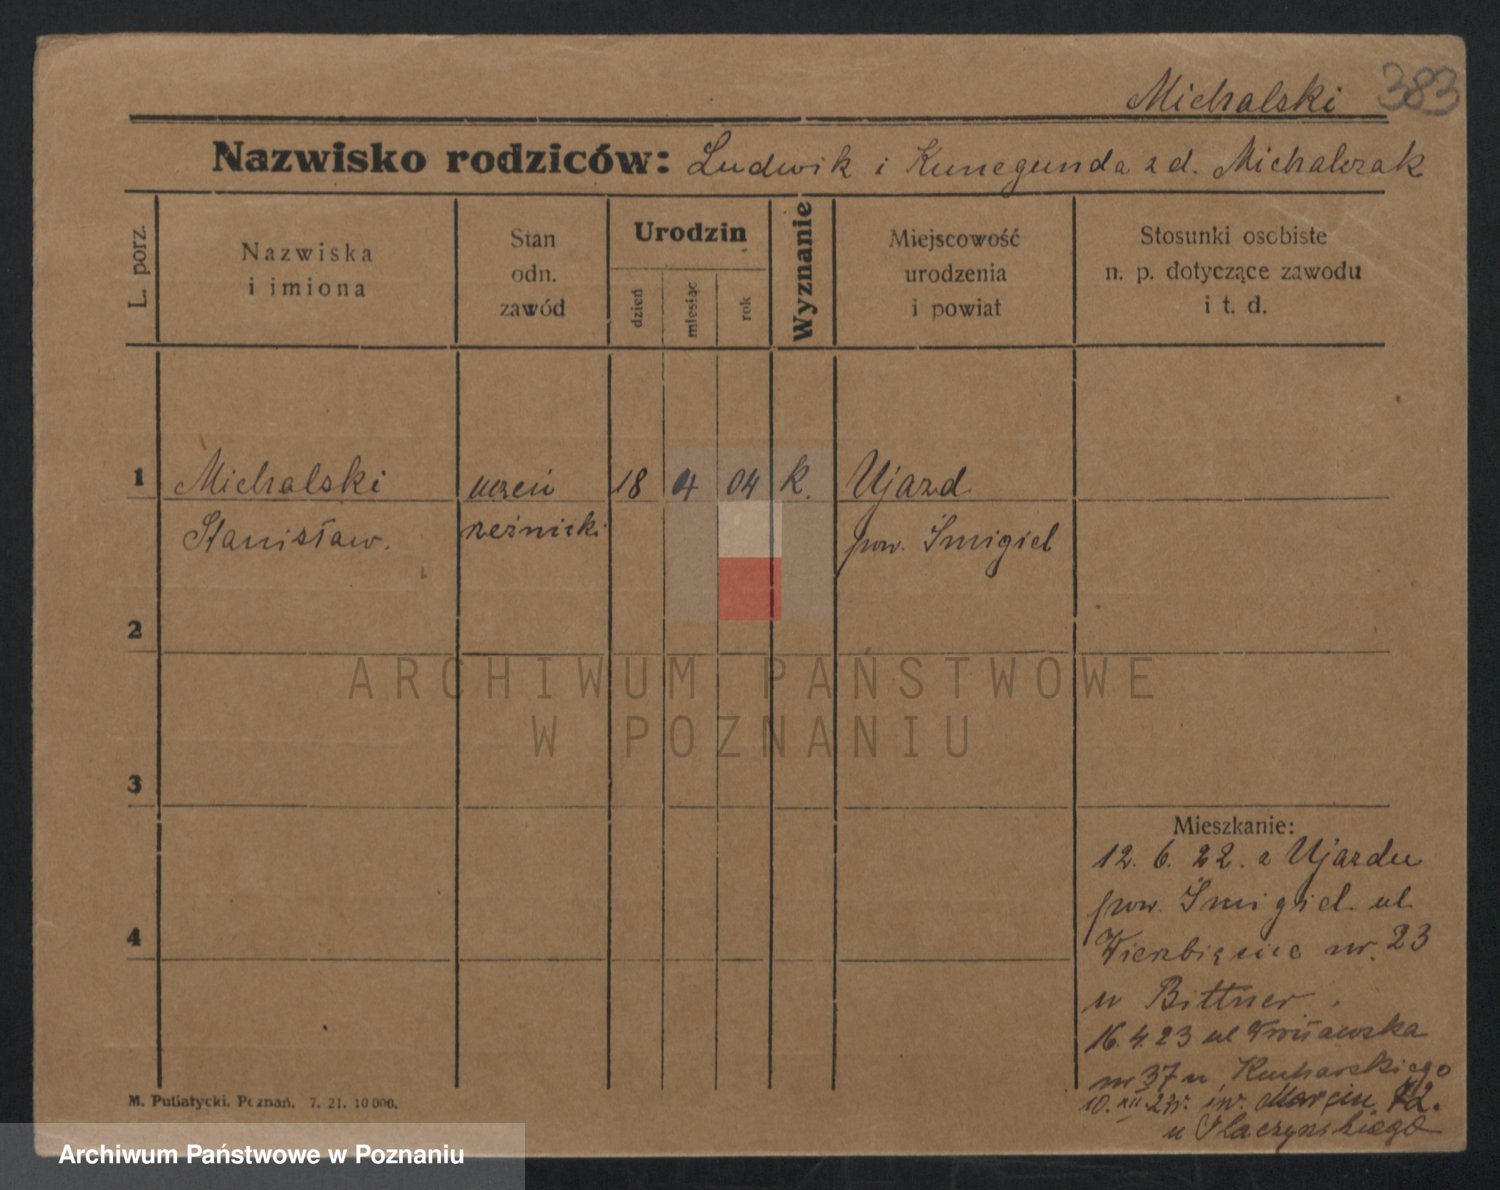 Michalski 383
Nazwisko rodziców: Ludwik i Kunegunda z d. Michalczak
L. porz.
Nazwiska
i imiona
Stan
odn.
zawód
Urodzin
dzień
miesiąc
rok
Wyznanie
Miejscowość
urodzenia
i powiat
Stosunki osobiste
n. p. dotyczące zawodu
i t. d.
1 Michalski uczeń 18 4 04 k. Ujazd
Stanisław. rzeźnicki pow. Śmigiel
2
3
4
Mieszkanie:
12. 6. 22. z Ujazdu
pow. Śmigiel ul
Wierzbięcice nr. 23
u Bittner.
16. 4. 23 ul
nr 37 u Kucharskiego
10. XII 23r. św. Marcin 12.
u
M. Putiatycki, Poznań. 7. 21. 10 000.
ARCHIWUM PAŃSTWOWE
W POZNANIU
Archiwum Państwowe w Poznaniu